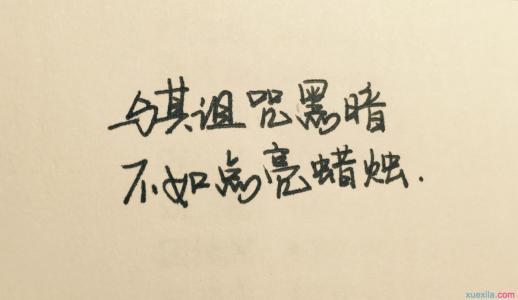 与其诅咒黑暗
不如点亮蜡烛.
xuexila.com